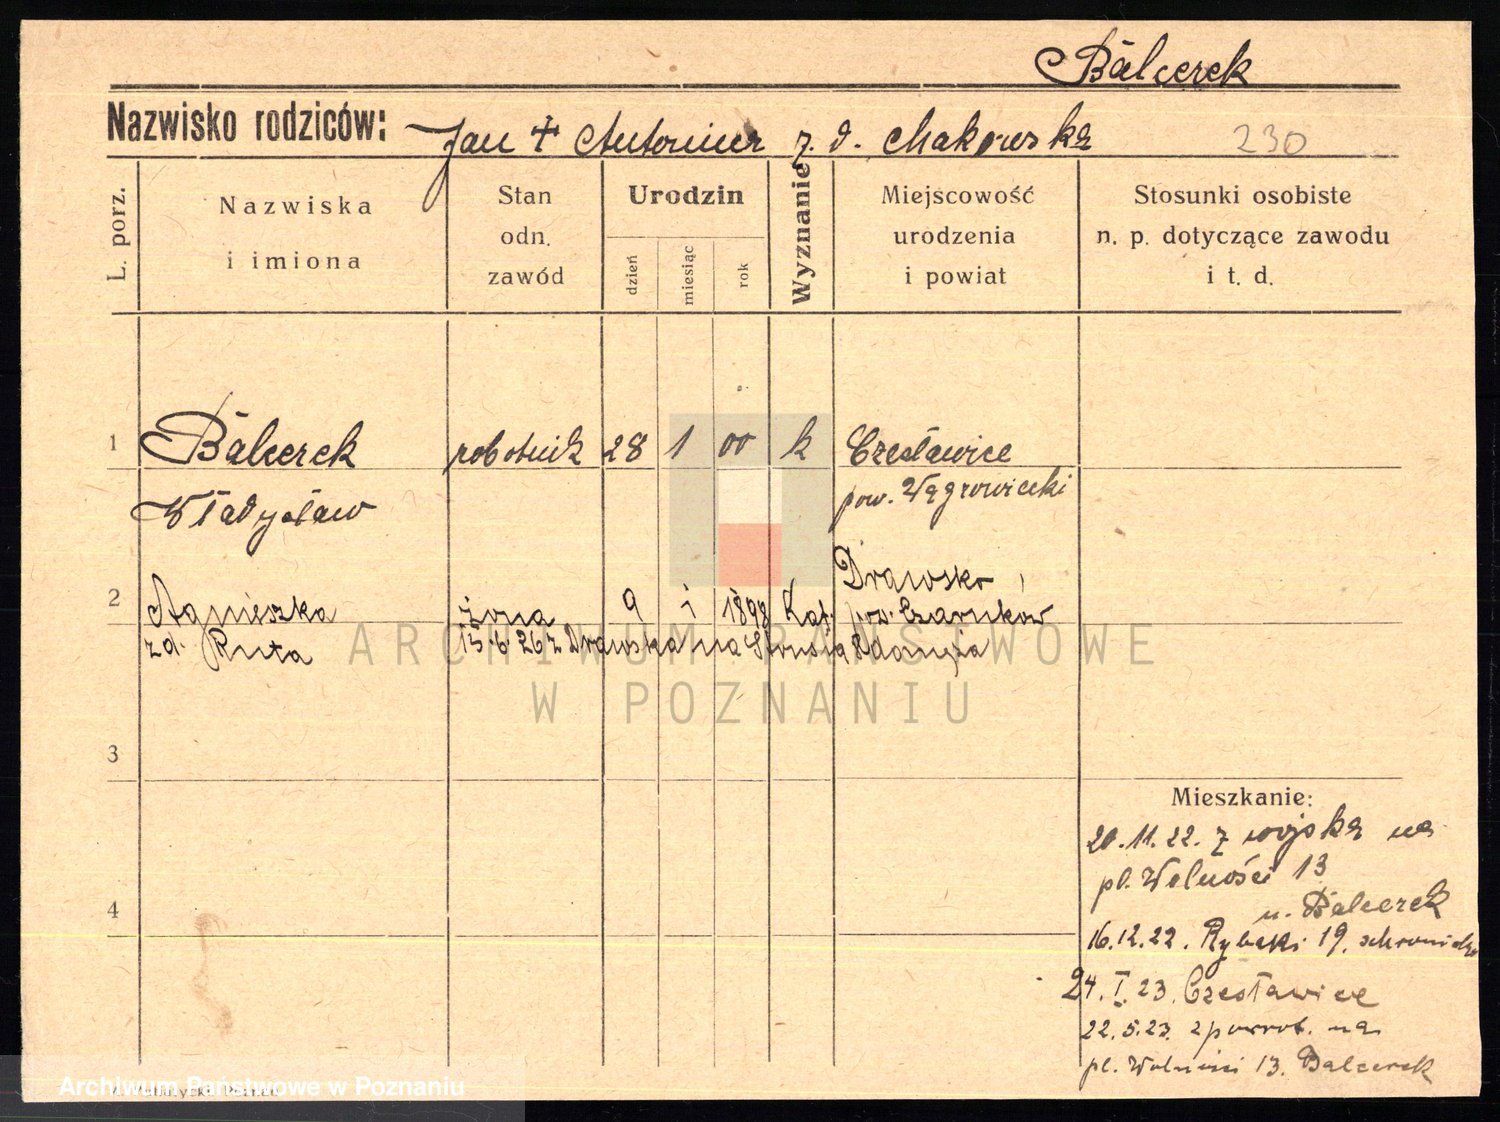 Balcerek
Nazwisko rodziców: Jan + Antonina z. d. Makowska 230
L. porz.
Nazwiska
i imiona
Stan
odn.
zawód
Urodzin
dzień
miesiąc
rok
Wyznanie
Miejscowość
urodzenia
i powiat
Stosunki osobiste
n. p. dotyczące zawodu
i t. d.
1 Balcerek robotnik 28 1 00 k Czesławice
Władysław pow. Wągrowiecki
Drawsko
2 Agnieszka żona 9 i 1898 Kat. pow. Czarnków
zd. Ruta 15.6.26 z Drawska na
ARCHIWUM PAŃSTWOWE
W POZNANIU
3
Mieszkanie:
20.11.22. z wojska na
pl. Wolności 13
4
u. Balcerek
16.12.22. Rybaki 19.
24.I.23. Czesławice
22.5.23. zpowrot. na
pl. Wolności 13. Balcerek
Archiwum Państwowe w Poznaniu